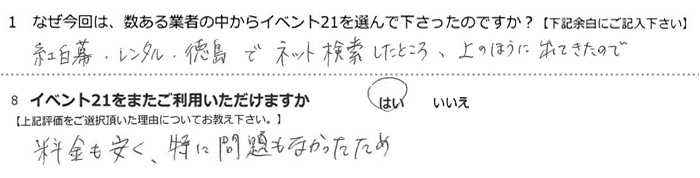 1 なぜ今回は、数ある業者の中からイベント21を選んで下さったのですか？【下記余白にご記入下さい】
紅白幕・レンタル・徳島でネット検索したところ、上のほうに出てきたので
8 イベント21をまたご利用いただけますか はい いいえ
【上記評価をご選択頂いた理由についてお教え下さい。】
料金も安く、特に問題もなかったため